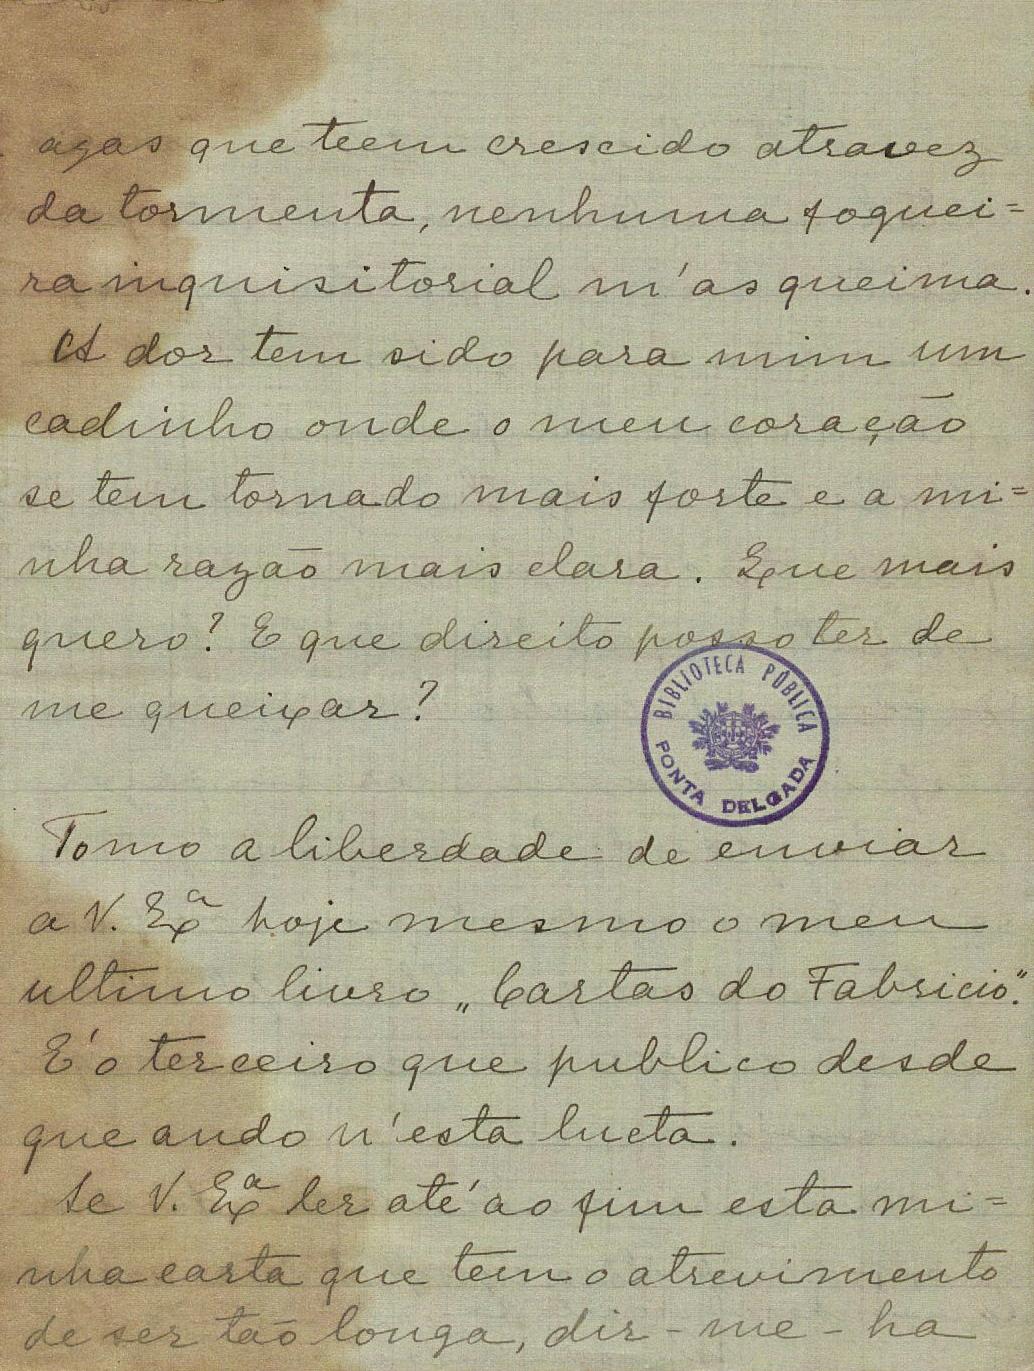 azas que teem crescido atravez
da tormenta, nenhuma foguei=
ra inquisitorial m'as queima.
A dor tem sido para mim um
cadinho onde o meu coração
se tem tornado mais forte e a mi=
nha razão mais clara. Que mais
quero? E que direito posso ter de
me queixar?
BIBLIOTECA PÚBLICA
PONTA DELGADA
Tomo a liberdade de enviar
a V. Exª hoje mesmo o meu
ultimo livro „Cartas do Fabricio".
E'o terceiro que publico desde
que ando n'esta lucta.
Se V. Exª ler até ao fim esta mi=
nha carta que tem o atrevimento
de ser tão longa, dir-me-ha